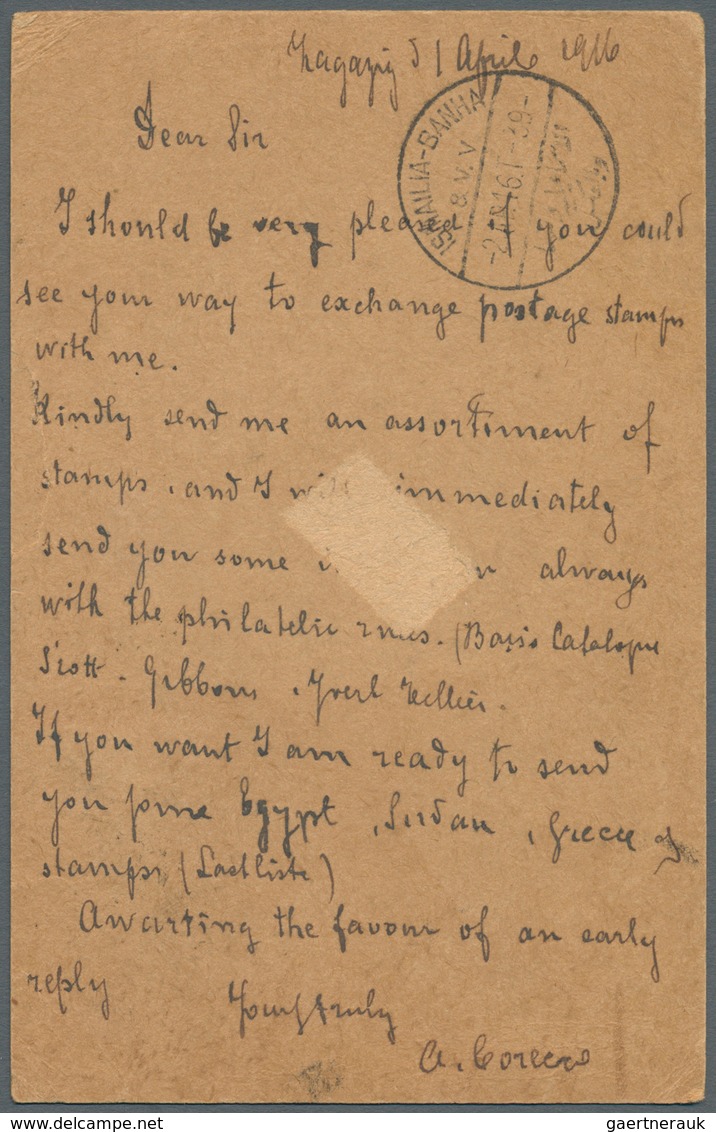 Zagazig 1 April 1916
Dear Sir
ISMAILIA-BANHA
& V.V
-2.AP.16.T-39-
I should be very pleased if you could
see your way to exchange postage stamps
with me.
Kindly send me an assortiment of
stamps, and I will immediately
send you some always
with the philatelic rules. (Basis Catalogue
Scott - Gibbons, Yvert Tellier.
If you want I am ready to send
you some Egypt, Sudan, Greece
stamps (
Awaiting the favour of an early
reply
Yours truly
gaertnerauk